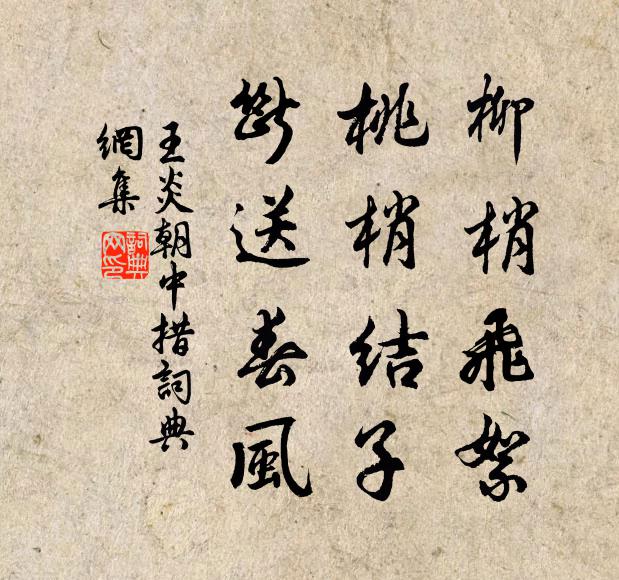 柳梢飛絮
桃梢結子
斷送春風
王炎朝中措詞典
網集
詞典
网印